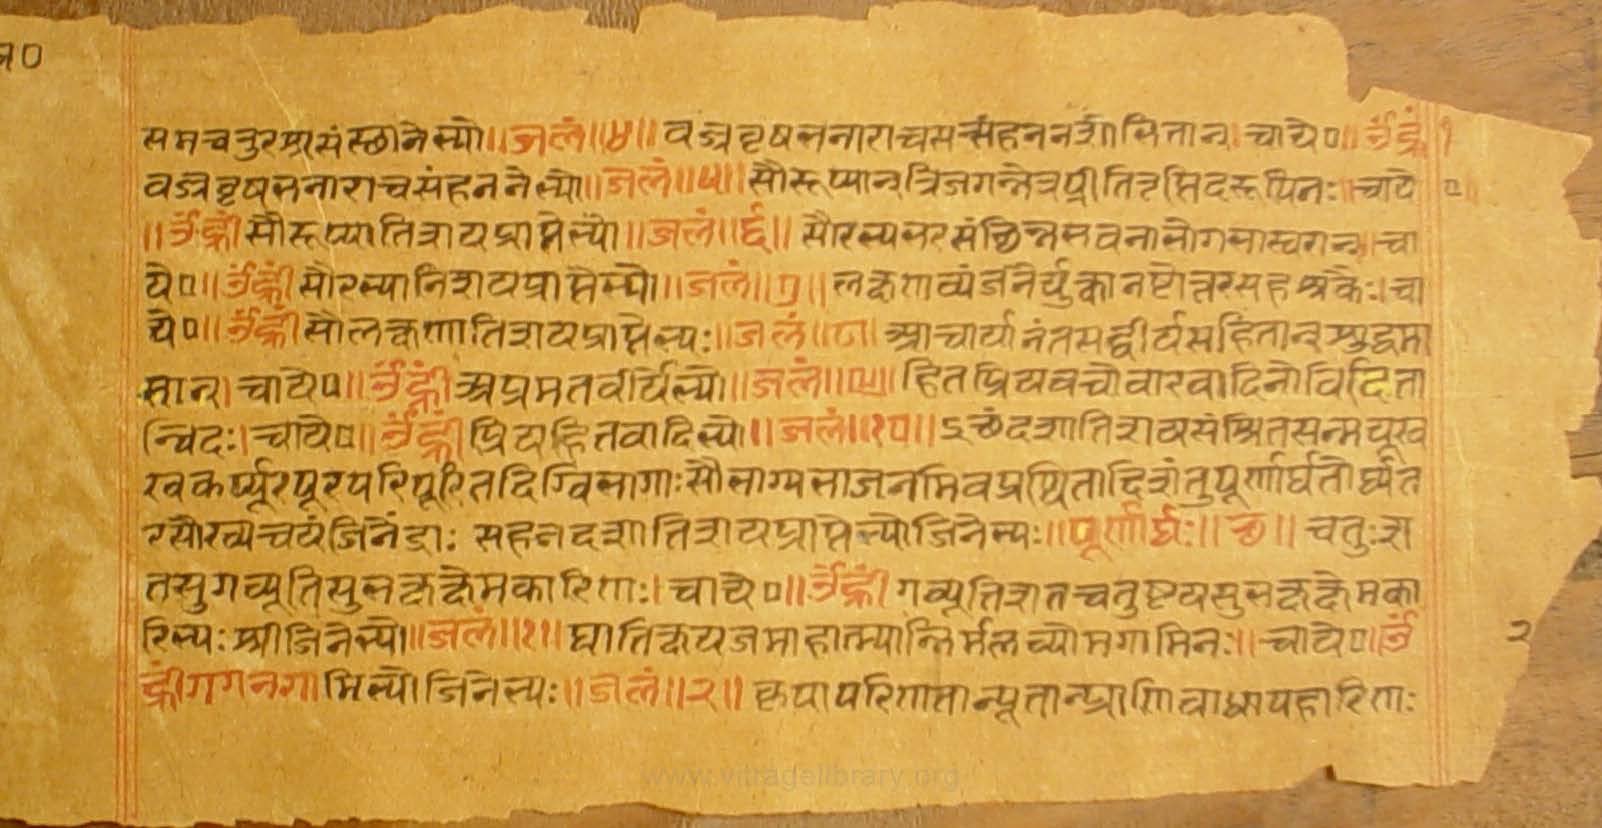 समचतुरश्रसंस्छानेभ्यो॥जलं॥४॥वज्रवृषभनाराचससंहननशालितान्।चाये०॥ॐह्रीं
वज्रवृषभनाराचसंहननेभ्यो॥जलं॥५॥सौरूप्यान्त्रिजगन्नेत्रप्रीतितृप्तिदरूपिनः॥चाये०॥
॥ॐह्रीं सौरूप्यातिशयप्राप्तेभ्यो॥जलं॥६॥सौरभ्यभरसंछिन्नभवनाभोगभास्वगान्॥चा
ये०॥ॐह्रीं सौरभ्यातिशयप्राप्तेभ्यो॥जलं॥७॥लक्षणव्यंजनैर्युक्तानष्टोत्तरसहश्रकैः।चा
ये०॥ॐह्रीं सौलक्षणातिशयप्राप्तेभ्यः॥जलं॥८॥आचार्यानंतसद्वीर्यसहितान्शुद्धमा
सान्।चाये०॥ॐह्रीं अप्रमतवीर्येभ्यो॥जलं॥९॥हितप्रियवचोवारवादिनोविदिता
न्विदः।चाये०॥ॐह्रीं प्रियहितवादिभ्यो॥जलं॥१०॥ऽछंदशातिशयसंश्रितसन्मयूख
खकर्प्पूरपूरपरिपूरितदिग्विभागाःसौभाग्यभाजनमिवप्रथितादिशंतुपूर्णार्घतोर्घ्यत
रसौख्यचयंजिनेंद्राः सहजदशातिशयप्राप्तेभ्योजिनेभ्यः॥पूर्णार्घः॥छ॥चतुःश
तसुगव्यूतिसुभक्षक्षेमकारिणः।चाये०॥ॐह्रीं गव्यूतिशतचतुष्टयसुभक्षक्षेमका
रिभ्यः श्रीजिनेभ्यो॥जलं॥११॥घातिक्षयजमाहात्म्यान्निर्मलव्योमगामिनः॥चाये०॥ॐ
ह्रीं गगनगामिभ्योजिनेभ्यः॥जलं॥२॥कृपापरिणतान्पूतान्प्राणि
२
www.vitragelibrary.org